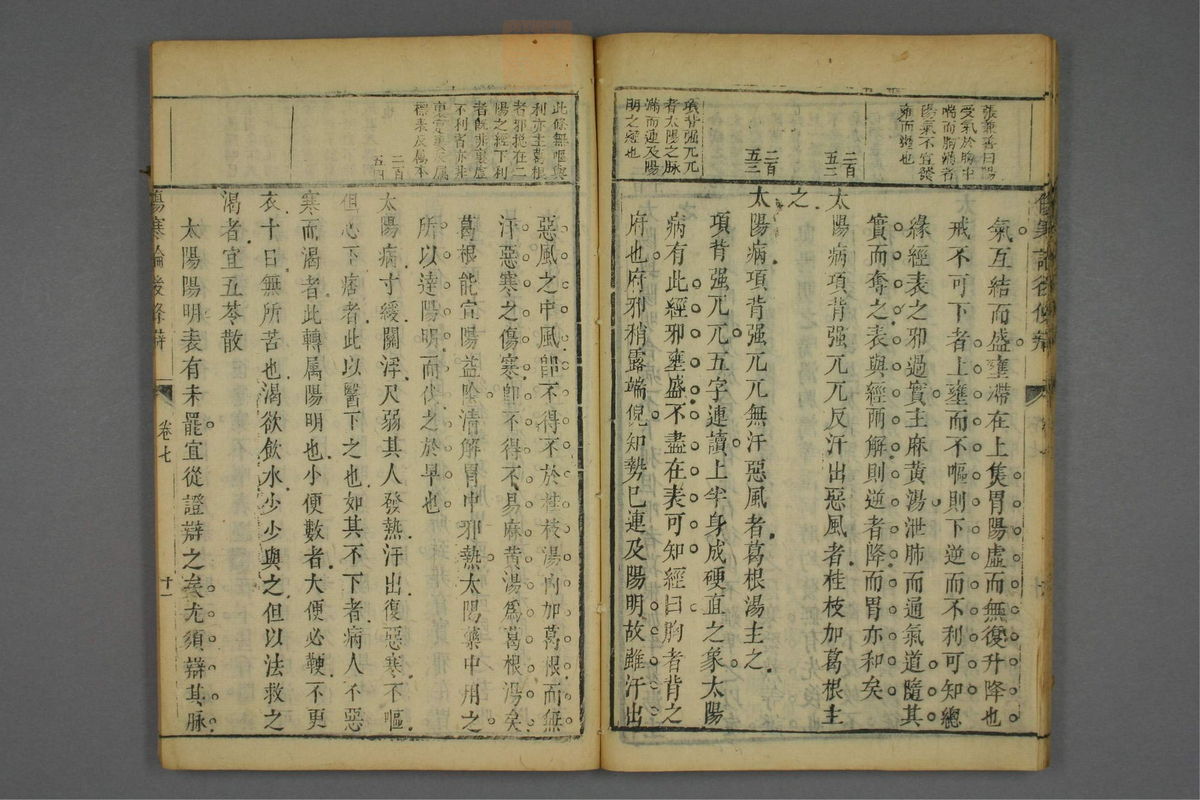 張兼善曰陽
受氣於胸中
喘而胸滿者
陽氣不宣發
壅而逆也
二百
五二
二百
五三
項背强兀兀
者太陽之脉
滿而連及陽
明之經也
氣互結而盛壅滯在上隻胃陽虛而無復升降也
戒不可下者上壅而不嘔則下逆而不利可知總
緣經表之邪過實主麻黃湯泄肺而通氣道隨其
實而奪之表與經兩解則逆者降而胃亦和矣
太陽病項背强兀兀反汗出惡風者桂枝加葛根主
之
太陽病項背强兀兀無汗惡風者葛根湯主之
項背强兀兀五字連讀上半身成硬直之象太陽
病有此經邪壅盛不盡在表可知經曰胸者背之
府也府邪稍露端倪知勢已連及陽明故雖汗出
此條無嘔與
利亦主葛根
者邪挺在二
陽之經下利
者旣非裏虛
不利者亦非
標表反傷本
二百
五四
惡風之中風卽不得不於桂枝湯內加葛根而無
汗惡寒之傷寒卽不得不易麻黃湯爲葛根湯矣
葛根能宣陽益陰清解胃中邪熱太陽藥中用之
所以達陽明而伐之於早也
太陽病寸緩關浮尺弱其人發熱汗出復惡寒不嘔
但心下痞者此以醫下之也如其不下者病人不惡
寒而渴者此轉屬陽明也小便數者大便必鞕不更
衣十日無所苦也渴欲飲水少少與之但以法救之
渴者宜五苓散
太陽陽明表有未罷宜從證辯之矣尤須辯其脉
傷寒論後條辯
卷七
十一